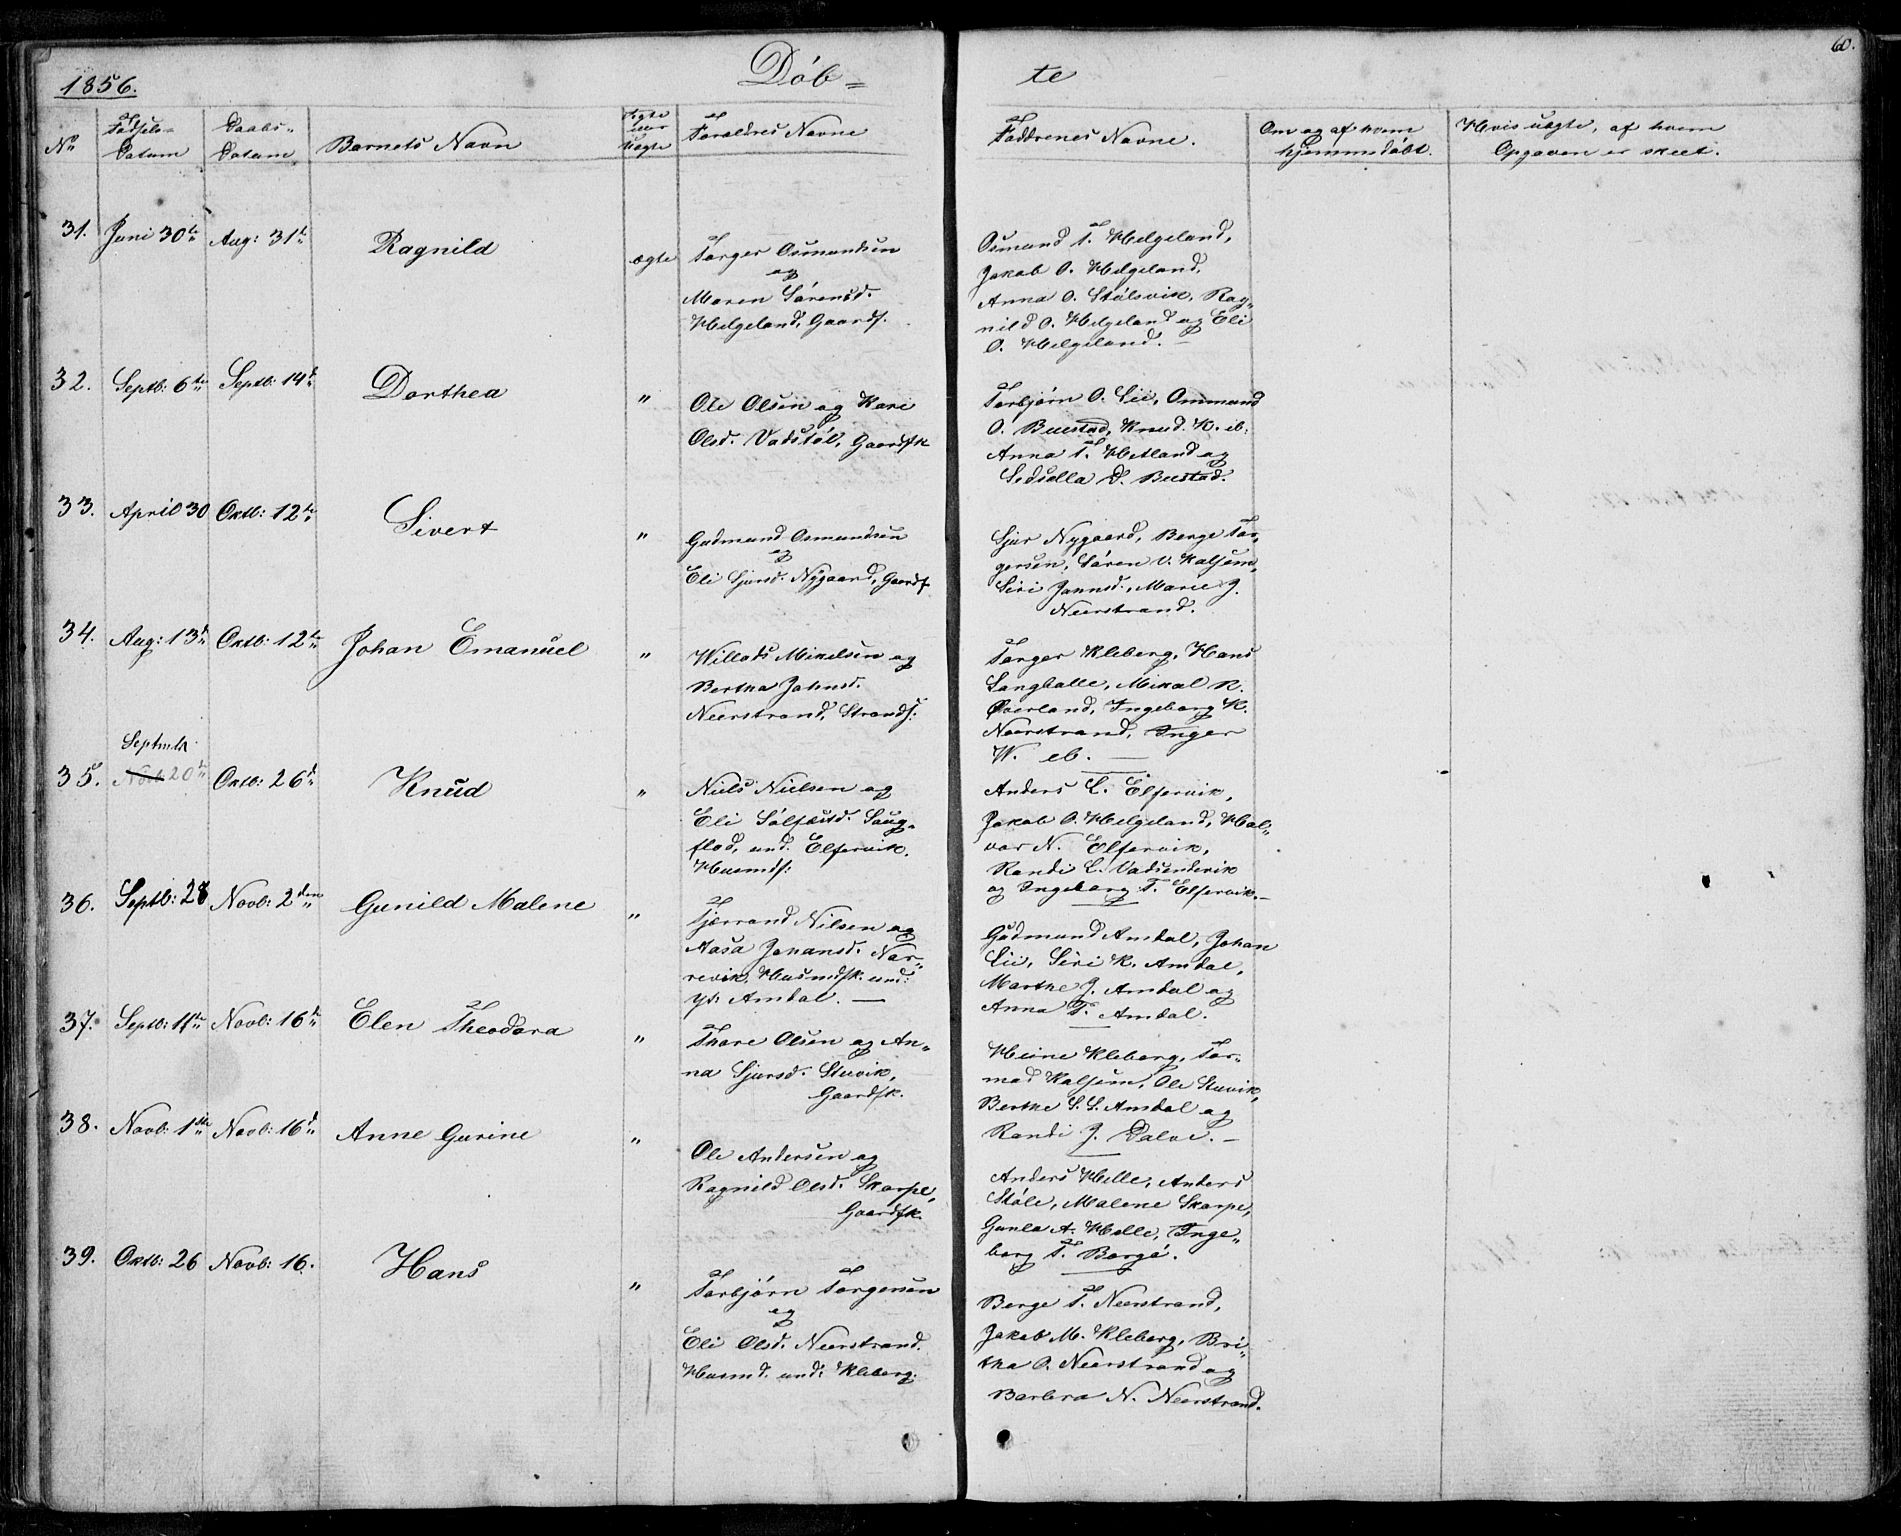 60.
1856.
Døb= te
No
Fødsels-Datum
Daabs-Datum
Barnets Navn
Ægte eller Uægte
Forældres Navne
Faddrenes Navne.
Om og af hvem hjemmedøbt.
Hvis uægte, af hvem Opgaven er skeet.
31. Juni 30te Aug: 31te Ragnild ægte
Torger Osmundsen
og
Maren Sørensd.
Helgeland, Gaardf.
Osmund T. Helgeland,
Jakob O. Helgeland,
Anna O. Stølsvik, Rag„
nild O. Helgeland og Eli
O. Helgeland. —
32. Septb: 6te Septb: 14de Dorthea „
Ole Olsen og Kari
Olsd. Vadstøl, Gaardfk
Torbjørn O. Lii, Ommund
O. Buestad, Knud K. ib:
Anna T. Hetland og
Sedsella D. Bustad.
33. April 30 Oktb: 12te Sivert „
Gudmund Osmundsen
og
Eli Sjursd. Nygaard, Gaardf
Sjur Nygaard, Berge Tor„
gersen, Søren V. Kalsem,
Siri Jonnsd., Marie J.
Neerstrand.
34. Aug: 13de Oktb: 12te Johan Emanuel „
Willads Mikelsen og
Bertha Johnsd.
Neerstrand, Strands:
Torger Kleberg, Hans
Langballe, Mikal R.
Øverland, Ingeborg K.
Neerstrand, Inger
W. eb. —
Septmbr
35. Novb 20de Oktb: 26de Knud „
Niels Nielsen og
Eli Sølfæstd. Saug„
flod, und. Elfervik.
Husmf:
Anders L. Elfervik,
Jakob O. Helgeland, Hal„
vor N. Elfervik,
Randi L. Vadsendvik
og Ingeborg T. Elfervik. —
36. Septb: 28 Novb: 2den Gunild Malene „
Tjerrand Nilsen og
Aasa Johansd. Nor„
revik, Husmdfk. und:
yt. Amdal. —
Gudmund Amdal, Johan
Lii, Siri K. Amdal,
Marthe J. Amdal og
Anna T. Amdal.
37. Septb: 11te Novb: 16de Elen Theodora „
Thore Olsen og An„
na Sjursd. Stuvik,
Gaardfk.
Heine Kleberg, Tor„
mod Kalsem, Ole Stuvik,
Berthe S. S. Amdal og
Randi J. Dalve. —
38. Novb: 1ste Novb: 16de Anne Gurine „
Ole Andersen og
Ragnild Olsd. Skorpe,
Gaardfk.
Anders Helle, Anders
Støle, Malene Skorpe,
Gunla A. Helle, Inge„
borg T. Borgø.
39. Oktb: 26 Novb: 16. Hans „
Torbjørn Torgersen
og
Eli Olsd. Neerstrand.
Husmd. und: Kleberg.
Berge T. Neerstrand,
Jakob M. Kleberg, Bri„
tha O. Neerstrand og
Barbra N. Neerstrand.